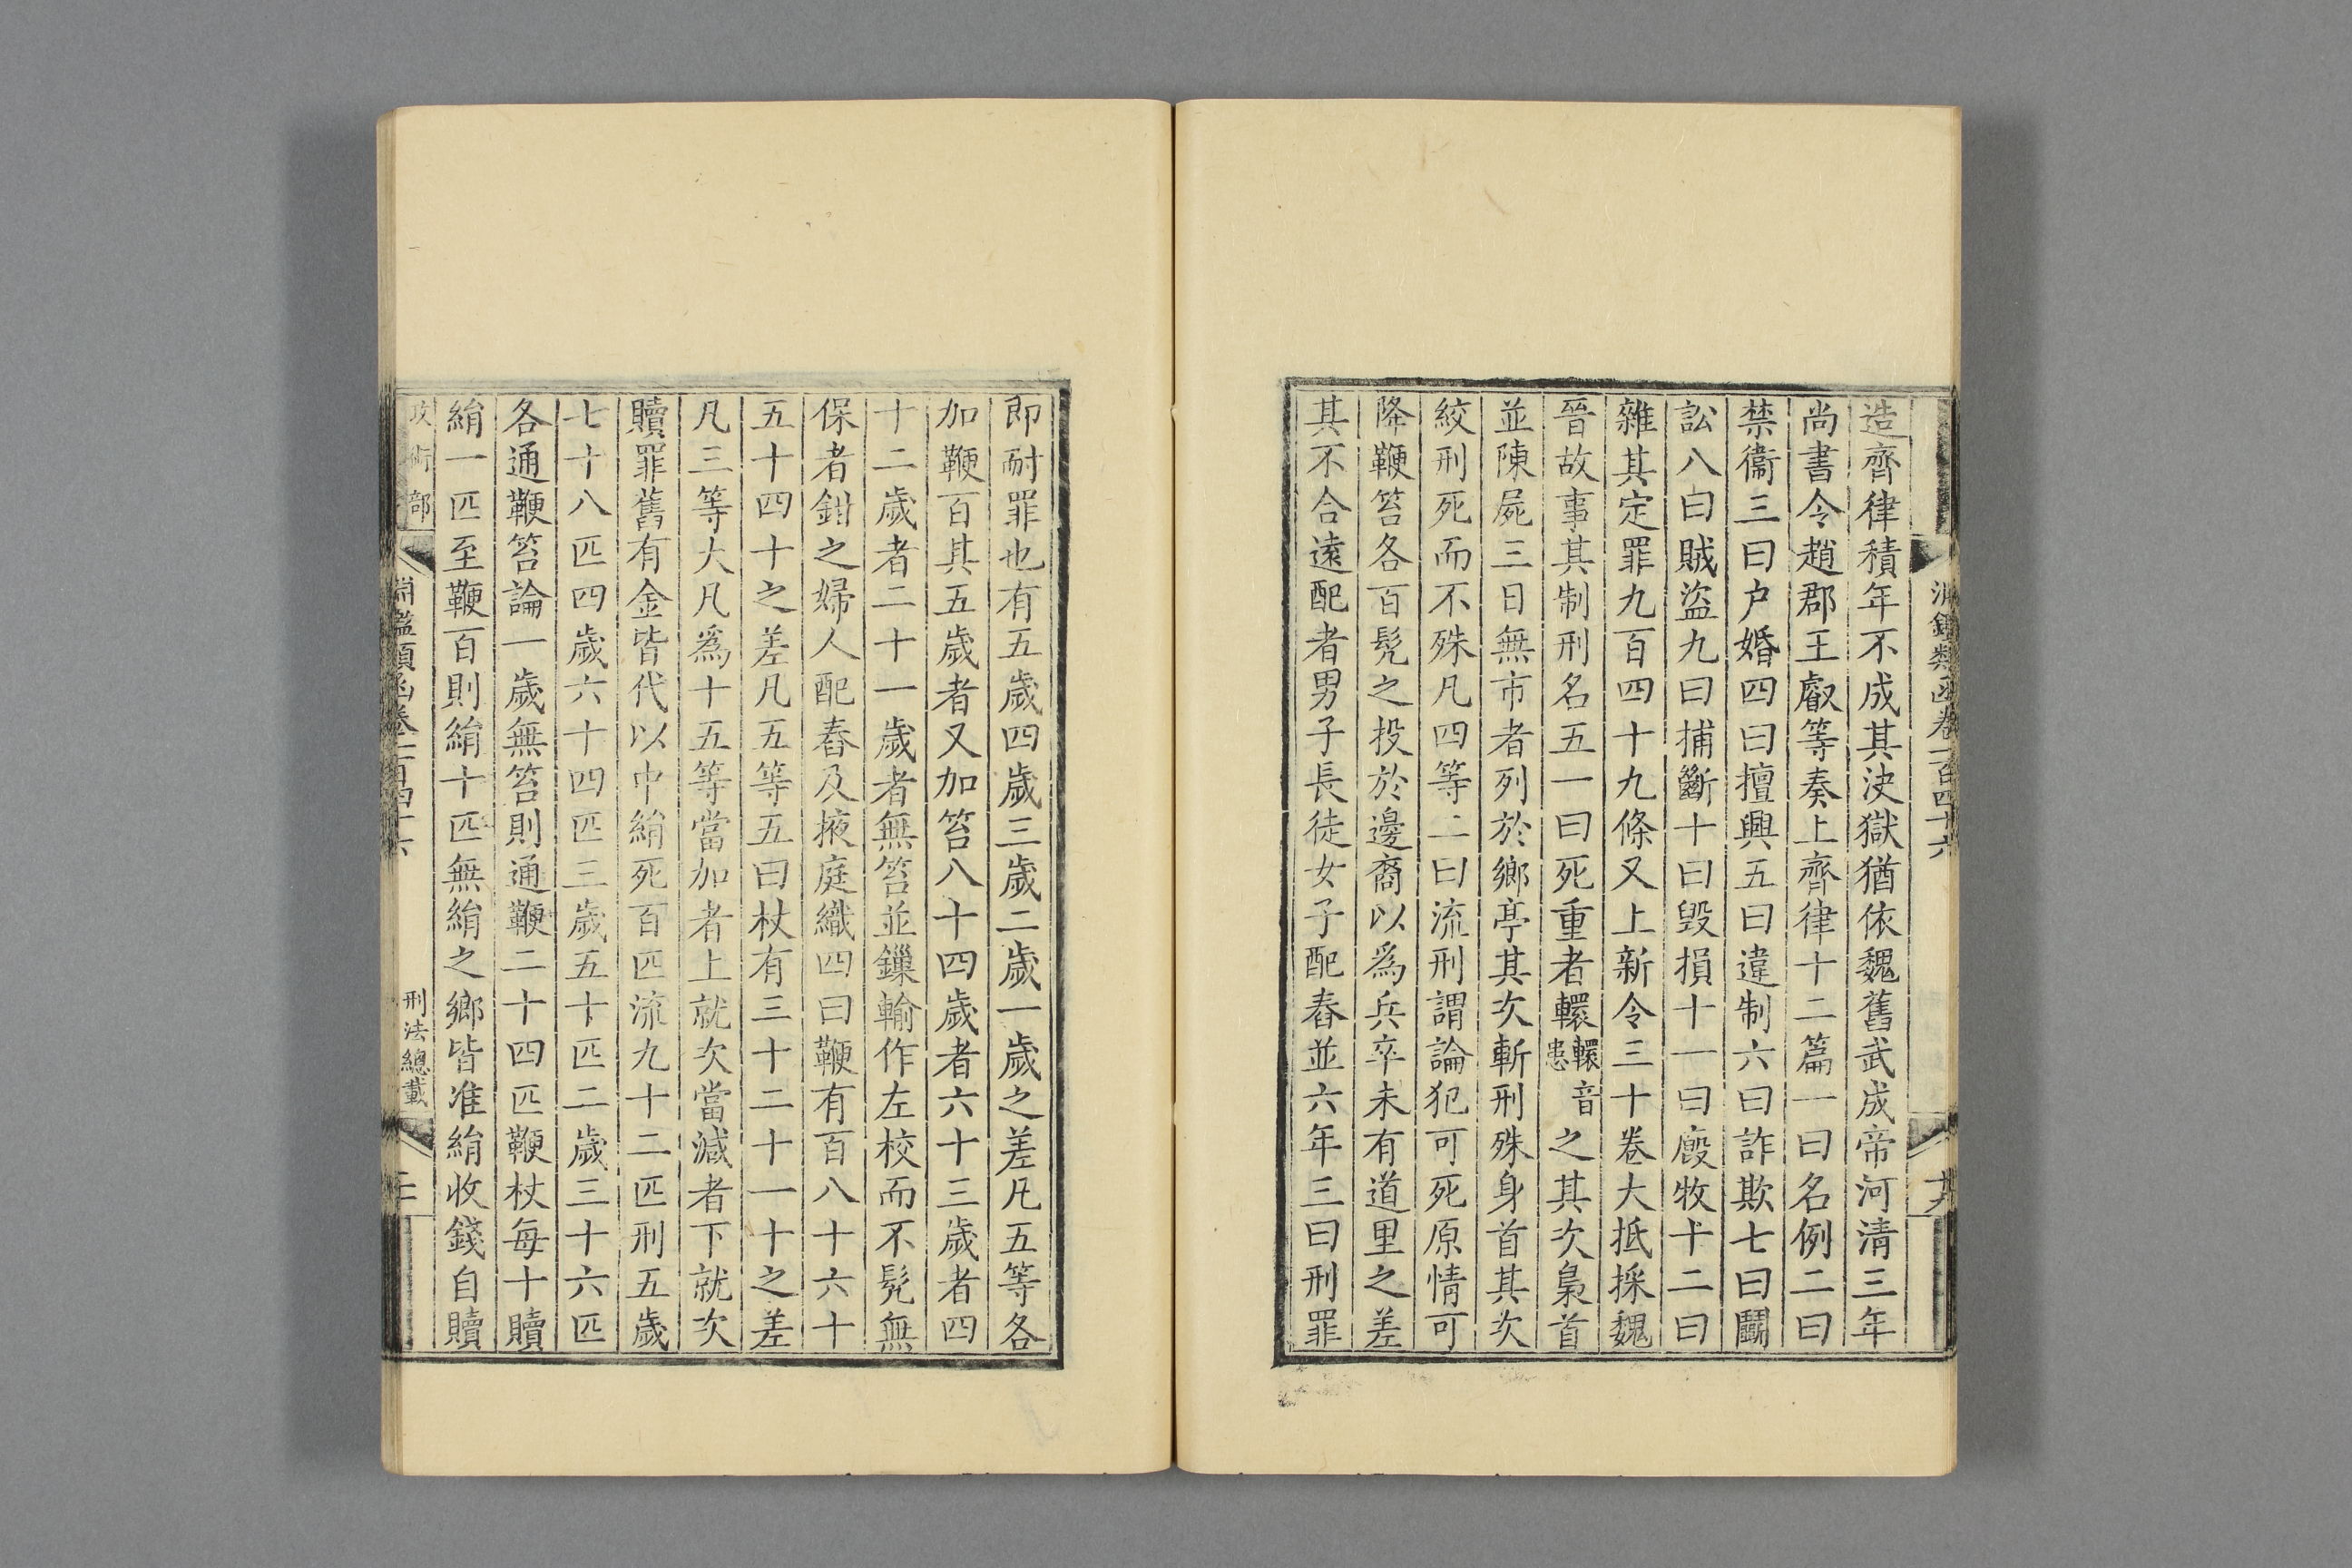 淵鑑類函卷一百四十六
造齊律積年不成其決獄猶依魏舊武成帝河清三年
尚書令趙郡王叡等奏上齊律十二篇一曰名例二曰
禁衞三曰户婚四曰擅興五曰違制六曰詐欺七曰鬭
訟八曰賊盜九曰捕斷十曰毁損十一曰廐牧十二曰
雜其定罪九百四十九條又上新令三十卷大抵採魏
晉故事其制刑名五一曰死重者轘轘音患之其次梟首
並陳屍三日無市者列於鄉亭其次斬刑殊身首其次
絞刑死而不殊凡四等二曰流刑謂論犯可死原情可
降鞭笞各百髡之投於邊裔以爲兵卒未有道里之差
其不合遠配者男子長徒女子配舂並六年三曰刑罪
即耐罪也有五歲四歲三歲二歲一歲之差凡五等各
加鞭百其五歲者又加笞八十四歲者六十三歲者四
十二歲者二十一歲者無笞並鏁輸作左校而不髡無
保者鉗之婦人配舂及掖庭織四曰鞭有百八十六十
五十四十之差凡五等五曰杖有三十二十一十之差
凡三等大凡爲十五等當加者上就次當減者下就次
贖罪舊有金皆代以中絹死百匹流九十二匹刑五歲
七十八匹四歲六十四匹三歲五十匹二歲三十六匹
各通鞭笞論一歲無笞則通鞭二十四匹鞭杖每十贖
絹一匹至鞭百則絹十匹無絹之鄉皆准絹收錢自贖
政術部
淵鑑類函卷一百四十六
刑法總載